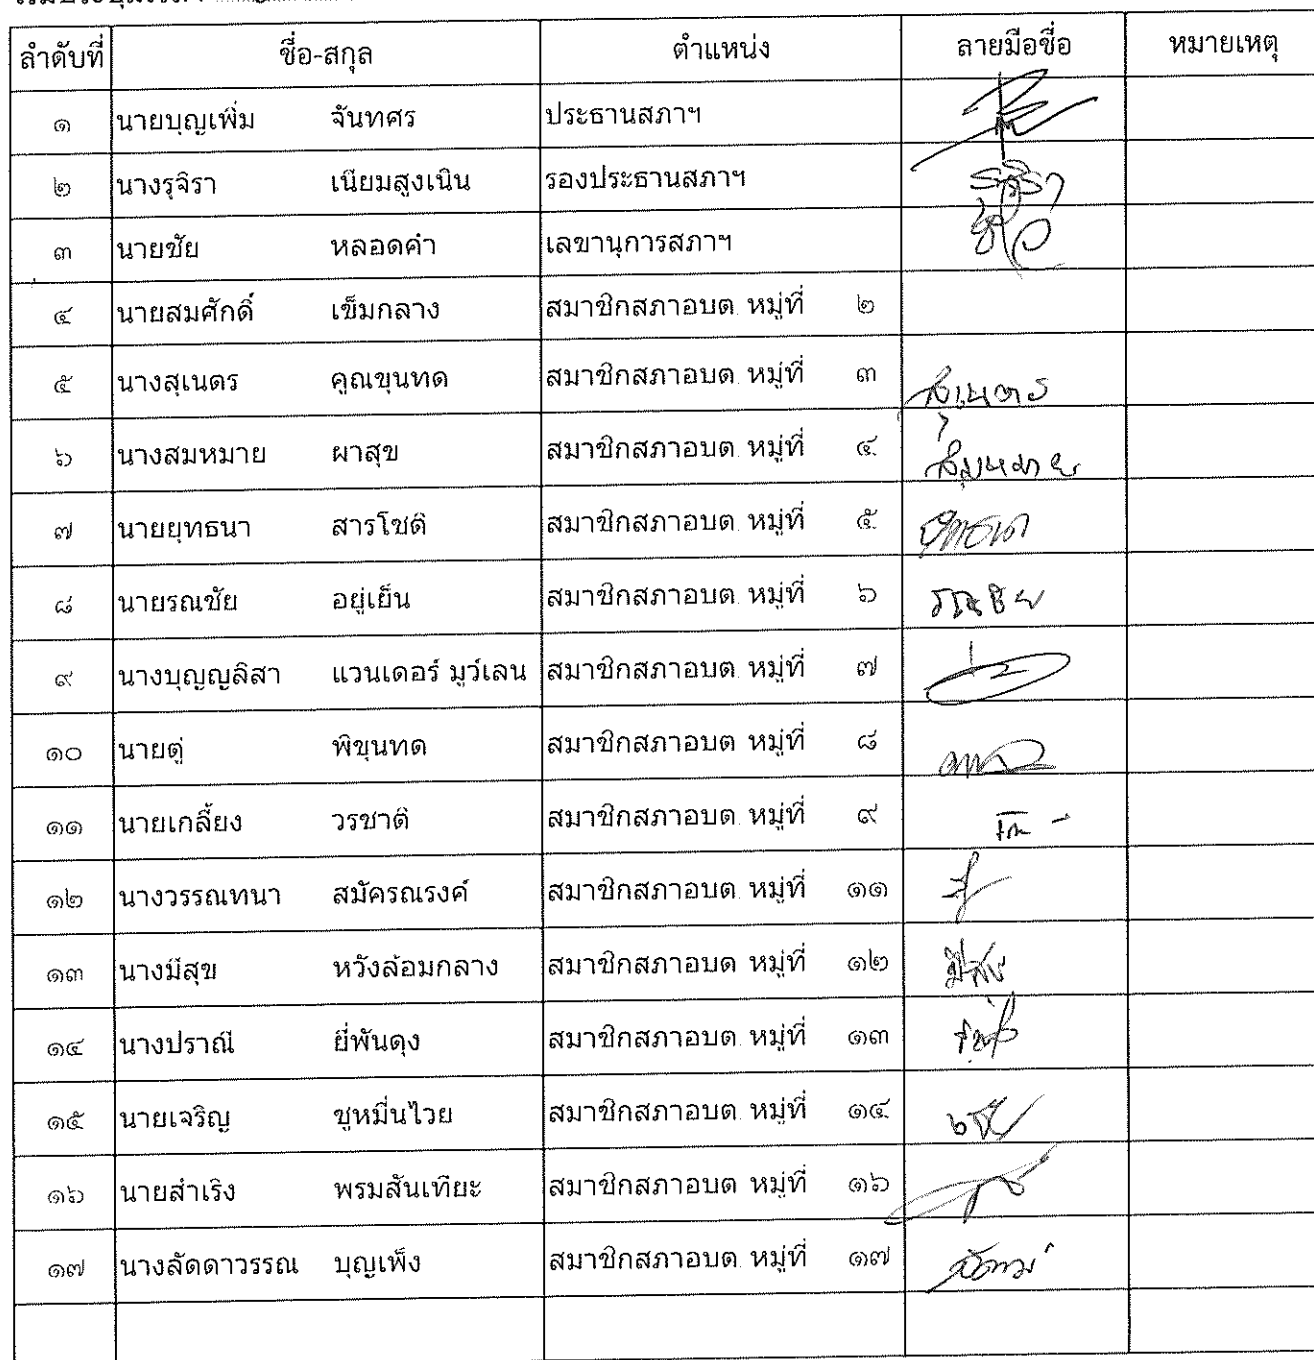 ลำดับที่ ชื่อ-สกุล ตำแหน่ง ลายมือชื่อ หมายเหตุ
๑ นายบุญเพิ่ม จันทศร ประธานสภาฯ
๒ นางรุจิรา เนียมสูงเนิน รองประธานสภาฯ รุจิรา
๓ นายชัย หลอดคำ เลขานุการสภาฯ
๔ นายสมศักดิ์ เข็มกลาง สมาชิกสภาอบต. หมู่ที่ ๒
๕ นางสุเนตร คูณขุนทด สมาชิกสภาอบต. หมู่ที่ ๓ สุเนตร
๖ นางสมหมาย ผาสุข สมาชิกสภาอบต. หมู่ที่ ๔ สมหมาย
๗ นายยุทธนา สารโชติ สมาชิกสภาอบต. หมู่ที่ ๕ ยุทธนา
๘ นายรณชัย อยู่เย็น สมาชิกสภาอบต. หมู่ที่ ๖ รณชัย
๙ นางบุญญลิสา แวนเดอร์ มูว์เลน สมาชิกสภาอบต. หมู่ที่ ๗
๑๐ นายตู่ พิขุนทด สมาชิกสภาอบต. หมู่ที่ ๘
๑๑ นายเกลี้ยง วรชาติ สมาชิกสภาอบต. หมู่ที่ ๙
๑๒ นางวรรณทนา สมัครณรงค์ สมาชิกสภาอบต. หมู่ที่ ๑๑
๑๓ นางมีสุข หวังล้อมกลาง สมาชิกสภาอบต. หมู่ที่ ๑๒ มีสุข
๑๔ นางปราณี ยี่พันดุง สมาชิกสภาอบต. หมู่ที่ ๑๓
๑๕ นายเจริญ ชูหมื่นไวย สมาชิกสภาอบต. หมู่ที่ ๑๔
๑๖ นายสำเริง พรมสันเทียะ สมาชิกสภาอบต. หมู่ที่ ๑๖
๑๗ นางลัดดาวรรณ บุญเพ็ง สมาชิกสภาอบต. หมู่ที่ ๑๗